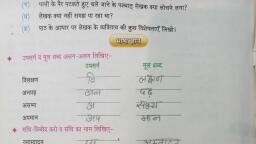 (ग) पत्नी के पैर पटकते हुए चले जाने के पश्चात् लेखक क्या सोचने लगा?
(घ) लेखक क्या नहीं समझ पा रहा था?
(ङ) पाठ के आधार पर लेखक के व्यक्तित्व की कुछ विशेषताएँ लिखो।
भाषा ज्ञान
उपसर्ग व मूल शब्द अलग-अलग लिखिए-
उपसर्ग मूल शब्द
विलक्षण वि लक्षण
अनपढ़ अन पढ़
असभ्य अ सभ्य
अपमान अप मान
संधि-विच्छेद करो व संधि का नाम लिखिए-